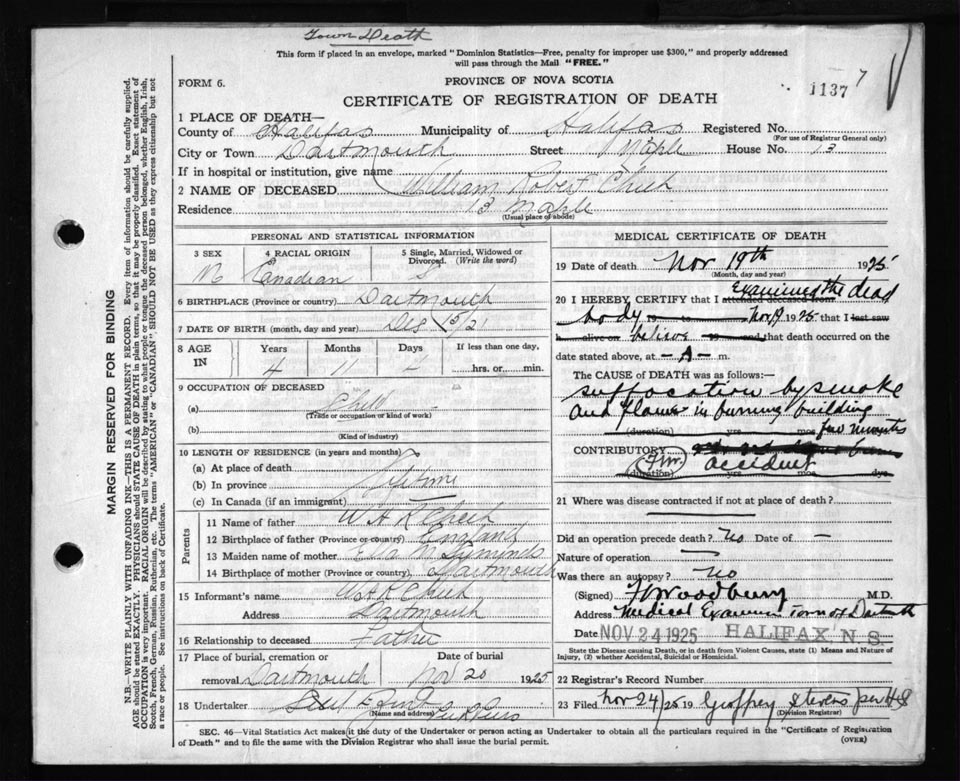 Town Death
This form if placed in an envelope, marked "Dominion Statistics—Free, penalty for improper use $300," and properly addressed
will pass through the Mail "FREE."
FORM 6.
PROVINCE OF NOVA SCOTIA
1137 7
CERTIFICATE OF REGISTRATION OF DEATH
1 PLACE OF DEATH—
County of Halifax Municipality of Halifax Registered No.
(For use of Registrar General only)
City or Town Dartmouth Street Maple House No. 13
If in hospital or institution, give name
2 NAME OF DECEASED William Robert
Residence 13 Maple
(Usual place of abode)
PERSONAL AND STATISTICAL INFORMATION
3 SEX 4 RACIAL ORIGIN 5 Single, Married, Widowed or Divorced. (Write the word)
M Canadian S
6 BIRTHPLACE (Province or country) Dartmouth
7 DATE OF BIRTH (month, day and year) Dec 15/21
8 AGE IN Years Months Days If less than one day,
4 11 hrs. or min.
9 OCCUPATION OF DECEASED
(a) Child
(Trade or occupation or kind of work)
(b)
(Kind of industry)
10 LENGTH OF RESIDENCE (in years and months)
(a) At place of death
(b) In province Lifetime
(c) In Canada (if an immigrant)
Parents
11 Name of father W A R
12 Birthplace of father (Province or country) England
13 Maiden name of mother Ella M Symonds
14 Birthplace of mother (Province or country) Dartmouth
15 Informant's name W A R
Address Dartmouth
16 Relationship to deceased Father
17 Place of burial, cremation or removal Date of burial
Dartmouth Nov 20 1925
18 Undertaker
(Name and address)
MEDICAL CERTIFICATE OF DEATH
19 Date of death Nov 19th 1925
(Month, day and year)
Examined the dead
20 I HEREBY CERTIFY that I attended deceased from
body 19 to Nov 19 1925 that I last saw
h alive on believe 19 and that death occurred on the
date stated above, at A m.
The CAUSE of DEATH was as follows:—
suffocation by smoke
and flames in burning building
(duration) yrs mos few minutes
CONTRIBUTORY
accident
(duration) yrs mos dys
21 Where was disease contracted if not at place of death?
Did an operation precede death? No Date of —
Nature of operation —
Was there an autopsy? No
(Signed) Woodbury M.D.
Address Medical Examiner Town of Dartmouth
Date NOV 24 1925 HALIFAX, N.S.
State the Disease causing Death, or in death from Violent Causes, state (1) Means and Nature of
Injury, (2) whether Accidental, Suicidal or Homicidal.
22 Registrar's Record Number
23 Filed Nov 24/25 19 Geoffrey Stevens per HS
(Division Registrar)
SEC. 46—Vital Statistics Act makes it the duty of the Undertaker or person acting as Undertaker to obtain all the particulars required in the "Certificate of Registration
of Death" and to file the same with the Division Registrar who shall issue the burial permit.
(OVER)
MARGIN RESERVED FOR BINDING
N.B.—WRITE PLAINLY WITH UNFADING INK—THIS IS A PERMANENT RECORD. Every item of information should be carefully supplied.
AGE should be stated EXACTLY. PHYSICIANS should STATE CAUSE OF DEATH in plain terms, so that it may be properly classified. Exact statement of
OCCUPATION is very important. RACIAL ORIGIN will be described by stating to what people or tongue the deceased person belonged, whether English, Irish,
Scotch, French, German, Russian, Ruthenian, etc. The terms "AMERICAN" or "CANADIAN" SHOULD NOT BE USED as they express citizenship but not
a race or people. See instructions on back of Certificate.